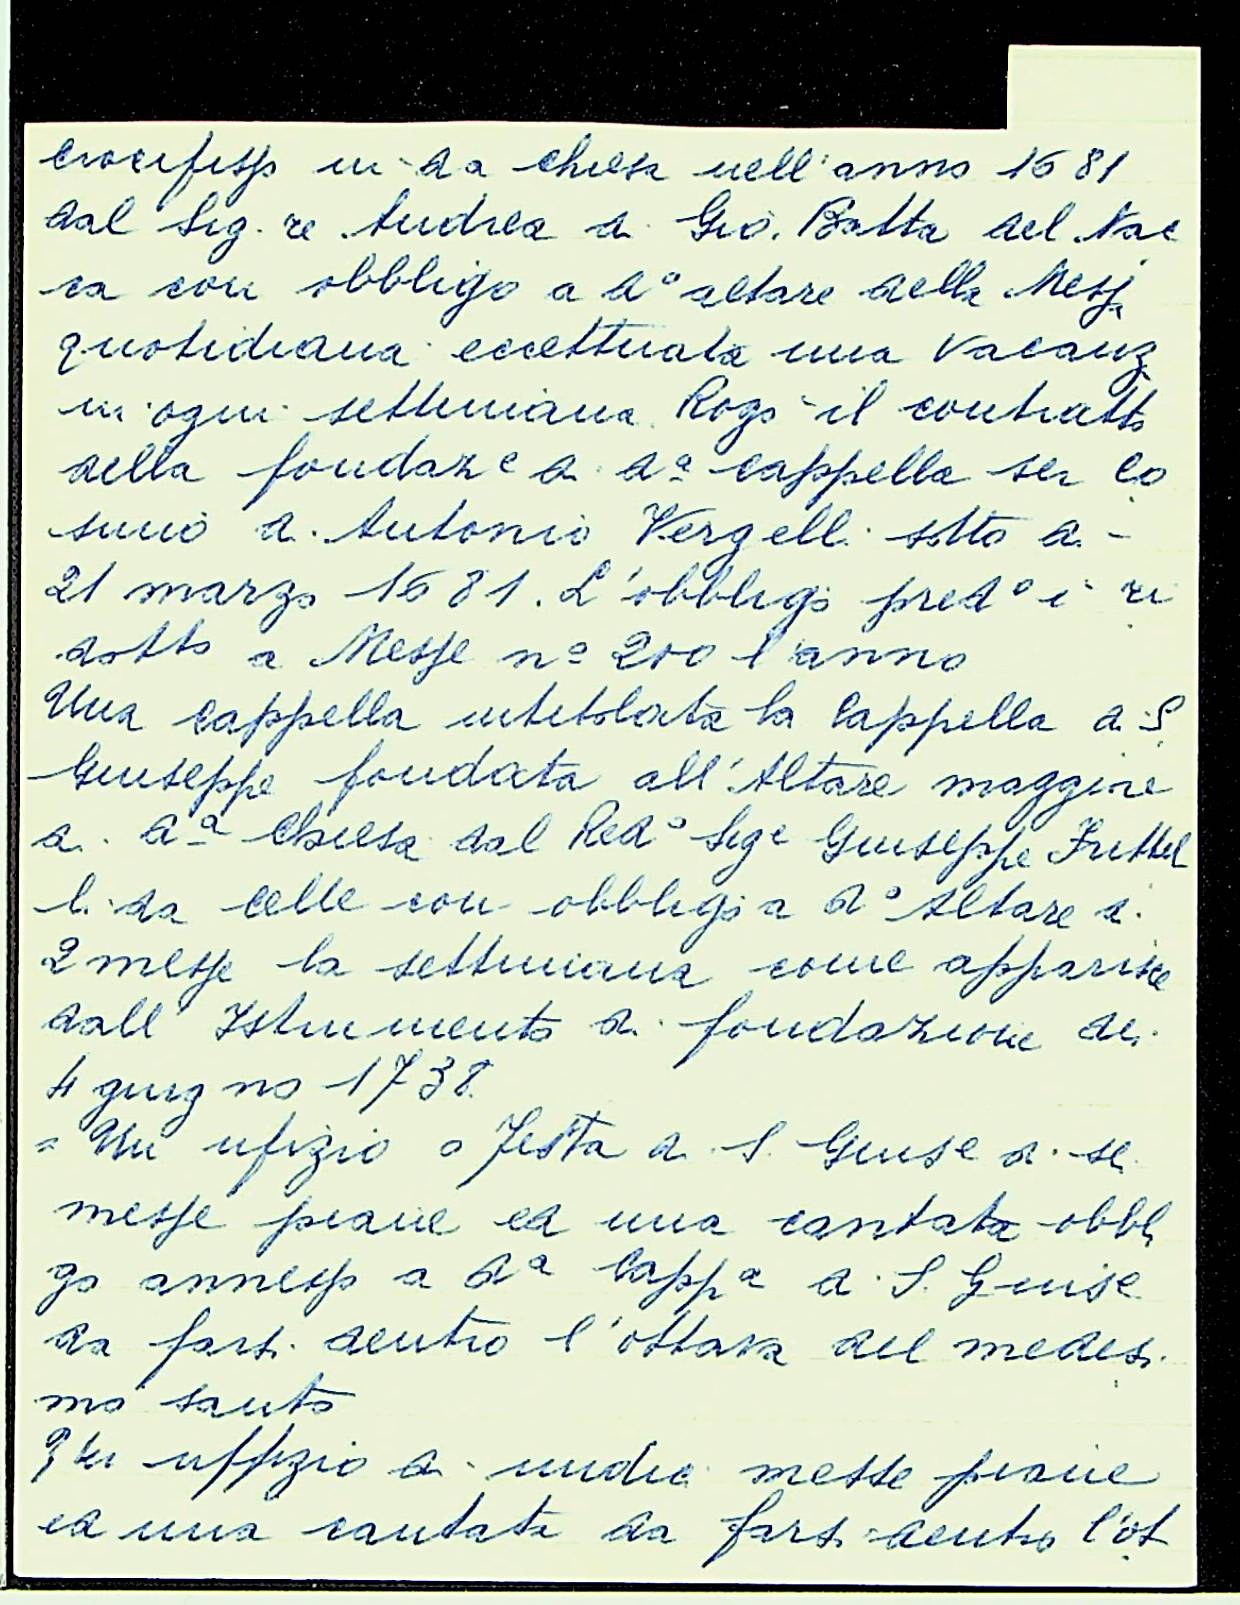 crocifisso in da chiesa nell'anno 1681
dal Sig.re Andrea di Gio. Batta del Nac
ca con obbligo a dº altare della Messa
quotidiana eccettuata una vacanz
in ogni settimana. Rogò il contratto
della fondazᵉ di dª cappella ser Co
simo di Antonio Vergelli sotto di -
21 marzo 1681. L'obbligo predº è ri
dotto a Messe nº 200 l'anno
Una cappella intitolata la Cappella di S.
Giuseppe fondata all'Altare maggiore
di dª Chiesa dal Redº Sigᵉ Giuseppe
li da Celle con obbligo a dº Altare di
2 messe la settimana come apparisce
dall'Istrumento di fondazione dei
4 giugno 1738.
= Un ufizio o Festa di S. Giuse di sei
messe piane ed una cantata obbli
go annesso a dª Cappª di S. Giuse
da farsi dentro l'ottava del medesi
mo santo
Un uffizio di undici messe piane
ed una cantata da farsi dentro l'ot